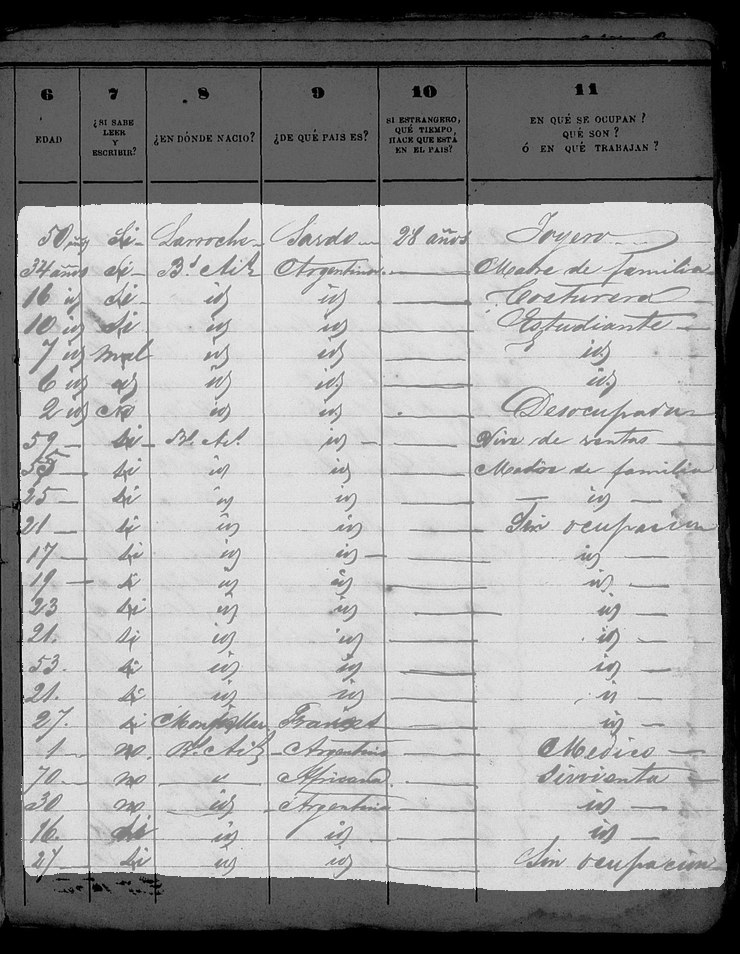 6 7 8 9 10 11
EDAD ¿SI SABE LEER Y ESCRIBIR? ¿EN DÓNDE NACIO? ¿DE QUÉ PAIS ES? SI ESTRANGERO, QUÉ TIEMPO HACE QUE ESTÁ EN EL PAIS? EN QUÉ SE OCUPAN? QUÉ SON? Ó EN QUÉ TRABAJAN?
50 años Si Sardo 28 años Joyero
34 años Si Bs Ais Argentina Madre de familia
16 id Si id id Costurera
10 id Si id id Estudiante
7 id mal id id id
6 id id id id id
2 id No id id Desocupada
59 Si Bs Ais id Vive de rentas
55 Si id id Madre de familia
25 Si id id id
21 Si id id Sin ocupacion
17 Si id id id
19 Si id id id
23 Si id id id
21. Si id id id
53. Si id id id
21. Si id id id
27. Si Frances id
1 no Bs Ais Argentino Medico
70 no Africana Sirvienta
30 no id Argentina id
16. id id id
27 Si id id Sin ocupacion